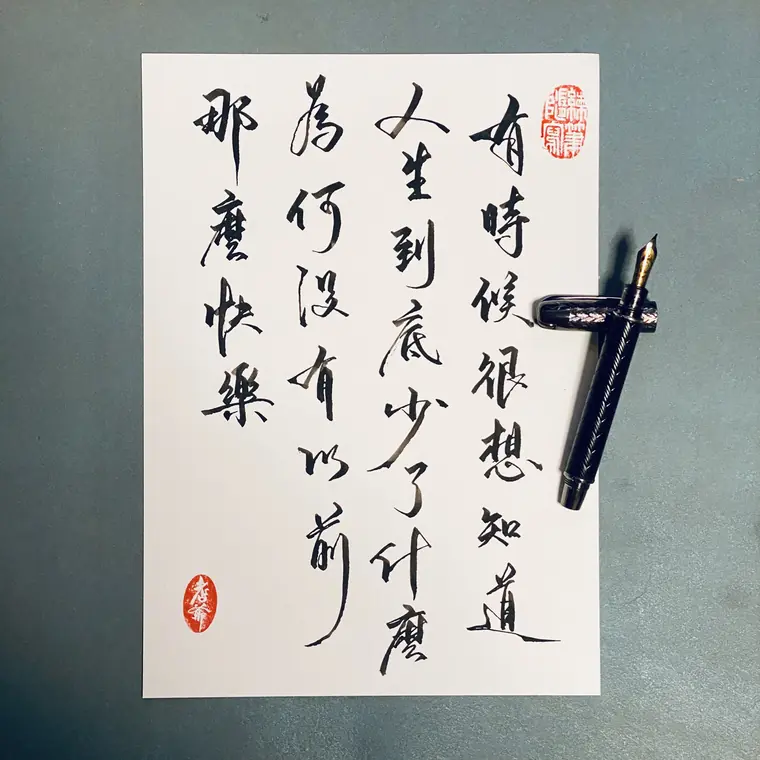 有時候很想知道
人生到底少了什麼
為何沒有以前
那麼快樂